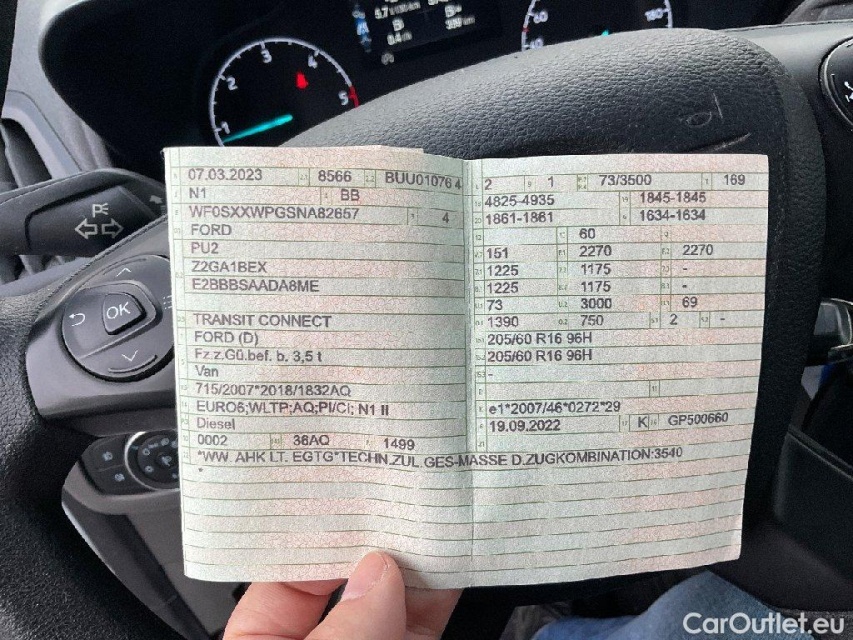 07.03.2023 8566 BUU01076 4
N1 BB
WF0SXXWPGSNA82657 4
FORD
PU2
Z2GA1BEX
E2BBBSAADA8ME
TRANSIT CONNECT
FORD (D)
Fz.z.Gü.bef. b. 3,5 t
Van
715/2007*2018/1832AQ
EURO6;WLTP;AQ;PI/CI; N1 II
Diesel
0002 36AQ 1499
*WW. AHK LT. EGTG*TECHN.ZUL.GES-MASSE D.ZUGKOMBINATION:3540
*
2 1 73/3500 169
4825-4935 1845-1845
1861-1861 1634-1634
60
151 2270 2270
1225 1175 -
1225 1175 -
73 3000 69
1390 750 2 -
205/60 R16 96H
205/60 R16 96H
-
e1*2007/46*0272*29
19.09.2022 K GP500660
OK
1 2 3 4 5
60
CarOutlet.eu